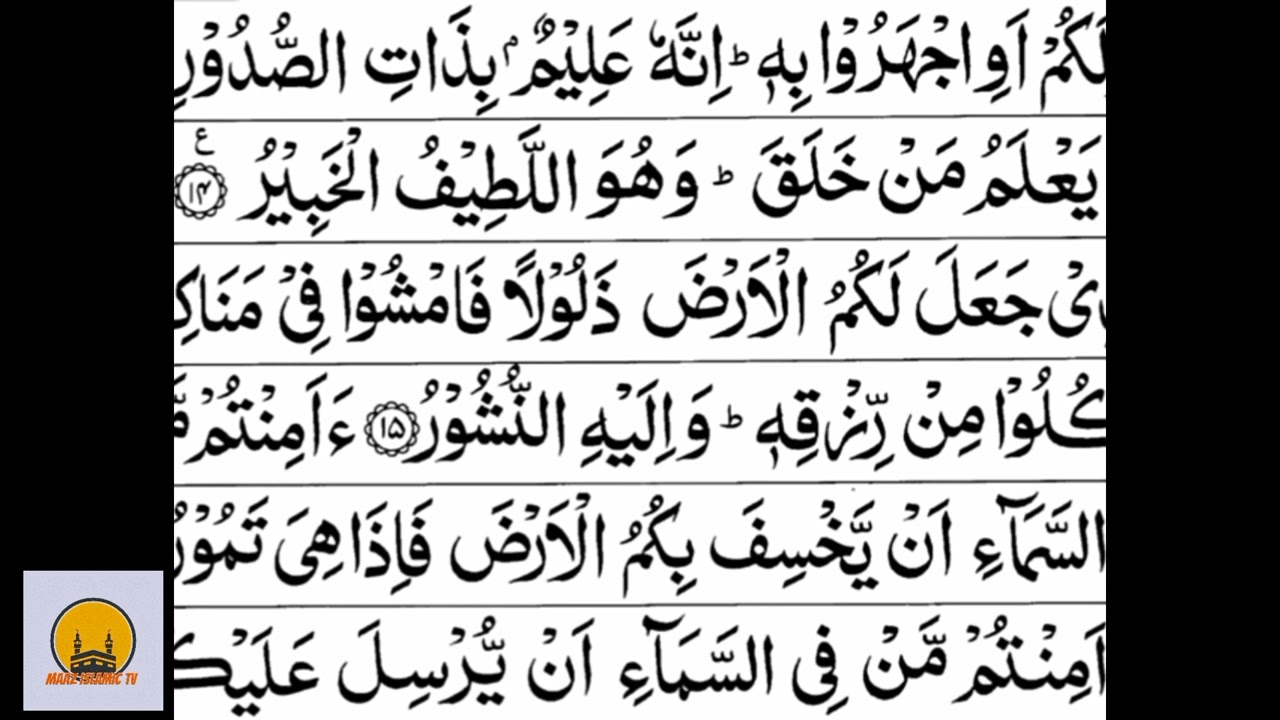 لَكُمْ اَوِ اجْهَرُوْا بِهٖ ؕ اِنَّهٗ عَلِيْمٌۢ بِذَاتِ الصُّدُوْرِ
يَعْلَمُ مَنْ خَلَقَ ؕ وَهُوَ اللَّطِيْفُ الْخَبِيْرُ ۱۴ ع
جَعَلَ لَكُمُ الْاَرْضَ ذَلُوْلًا فَامْشُوْا فِيْ مَنَاكِ
كُلُوْا مِنْ رِّزْقِهٖ ؕ وَاِلَيْهِ النُّشُوْرُ ۱۵ ءَاَمِنْتُمْ
السَّمَآءِ اَنْ يَّخْسِفَ بِكُمُ الْاَرْضَ فَاِذَا هِيَ تَمُوْرُ
اَمِنْتُمْ مَّنْ فِي السَّمَآءِ اَنْ يُّرْسِلَ عَلَيْك
MAAZ ISLAMIC TV